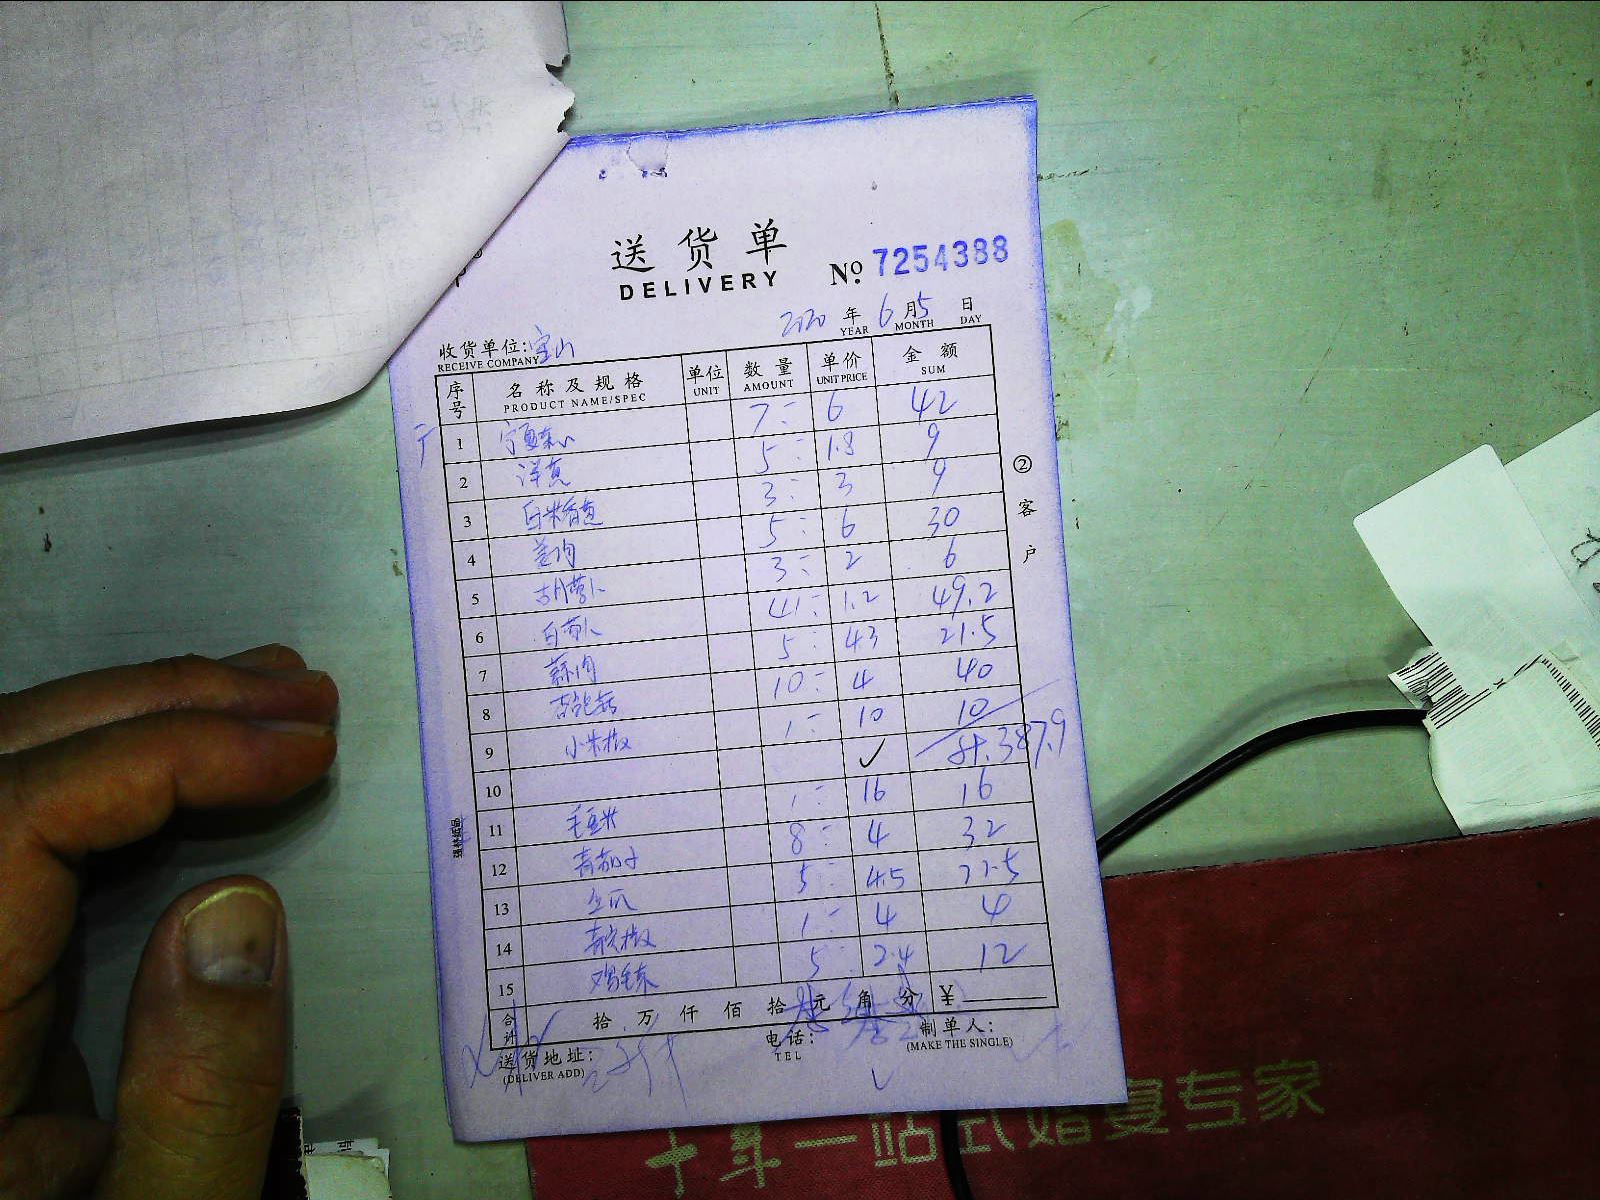 送货单
DELIVERY
No. 7254388
2020 年 6 月 5 日
YEAR MONTH DAY
收货单位: 宝山
RECEIVE COMPANY
序号 名称及规格 单位 数量 单价 金额
PRODUCT NAME/SPEC UNIT AMOUNT UNIT PRICE SUM
1 宁夏菜心 7 6 42
2 洋葱 5 1.8 9
3 白米香葱 3 3 9
4 姜肉 5 6 30
5 胡萝卜 3 2 6
6 白萝卜 41 1.2 49.2
7 蒜肉 5 43 21.5
8 杏鲍菇 10 4 40
9 小米椒 1 10 10
10 ✓ 387.9
11 毛豆米 1 16 16
12 青茄子 8 4 32
13 5 4.5 22.5
14 青尖椒 1 4 4
15 鸡毛菜 5 2.4 12
合计 拾 万 仟 佰 拾 元 角 分 ¥
送货地址: 电话: 制单人:
(DELIVER ADD) TEL (MAKE THE SINGLE)
② 客户
十年一站式婚宴专家